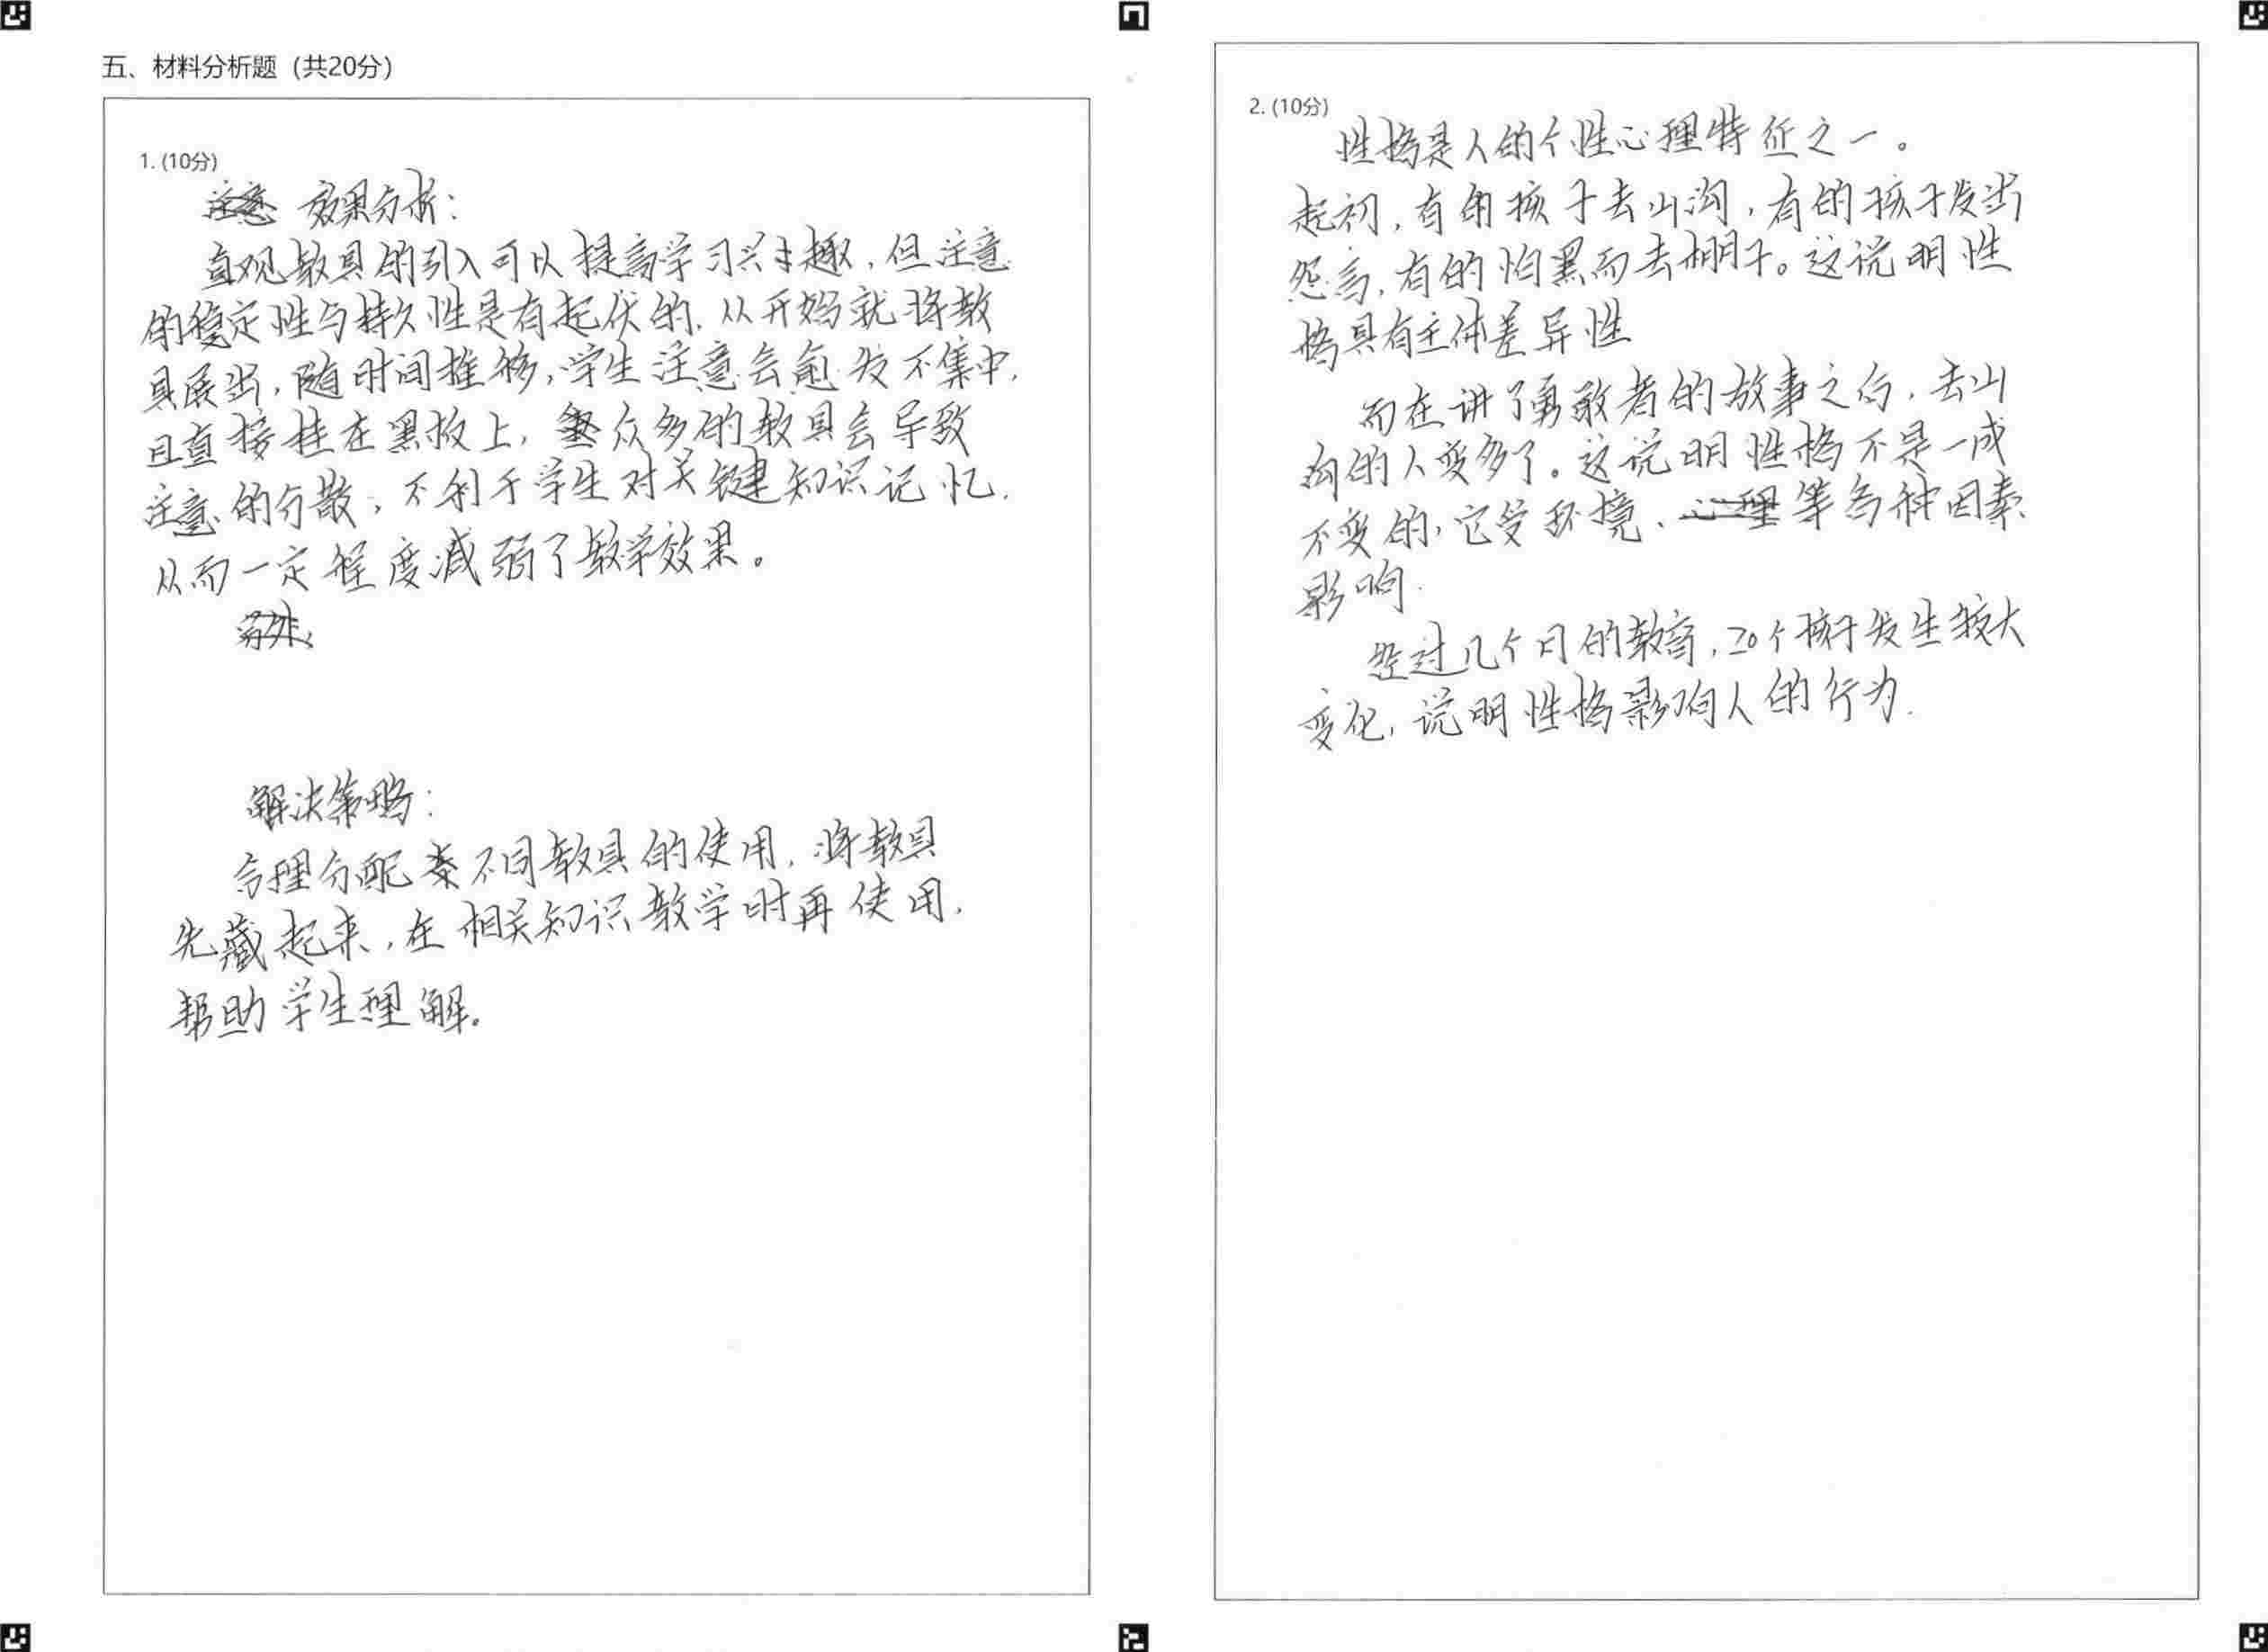 五、材料分析题（共20分）
1. (10分)
效果分析：
直观教具的引入可以提高学习兴趣，但注意
的稳定性与持久性是有起伏的，从开始就将教
具展出，随时间推移，学生注意会愈发不集中，
且直接挂在黑板上，众多的教具会导致
注意的分散，不利于学生对关键知识记忆，
从而一定程度减弱了教学效果。
解决策略：
合理分配不同教具的使用，将教具
先藏起来，在相关知识教学时再使用，
帮助学生理解。
2. (10分)
性格是人的个性心理特征之一。
起初，有的孩子去山沟，有的孩子发出
怨言，有的怕黑而去棚子。这说明性
格具有主体差异性
而在讲了勇敢者的故事之后，去山
沟的人变多了。这说明性格不是一成
不变的，它受环境、等各种因素
影响.
经过几个月的教育，20个孩子发生较大
变化，说明性格影响人的行为.